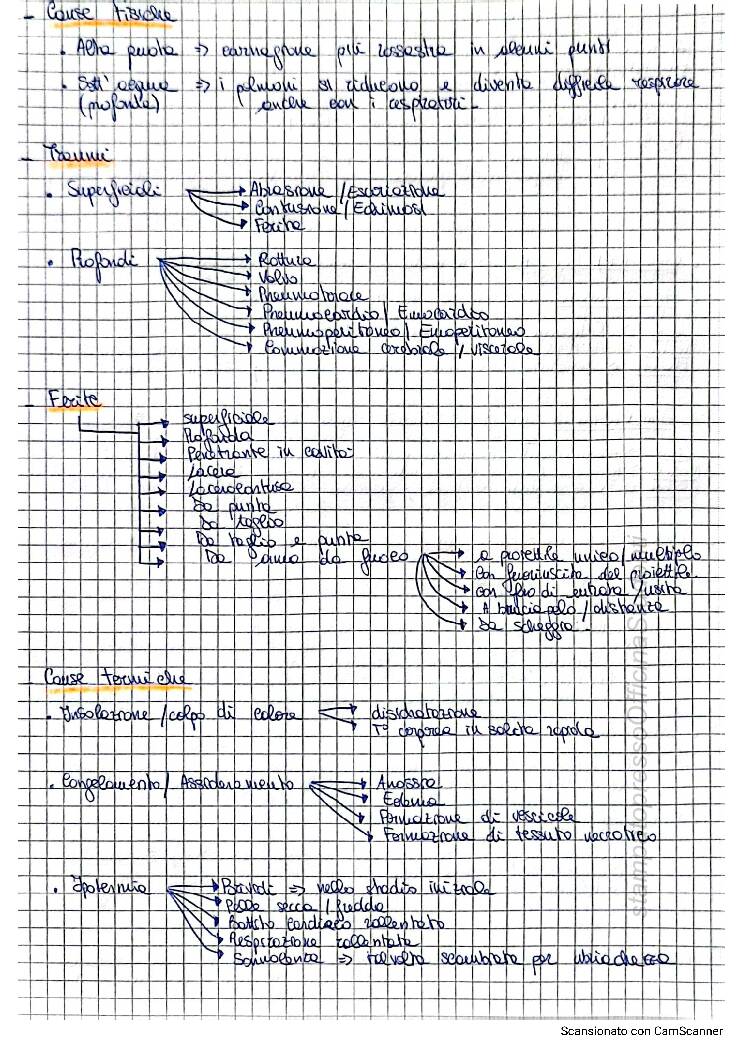 - Cause fisiche
• Alta quota => carnagione più rossastra in alcuni punti
• Sott'acqua => i polmoni si riducono e diventa difficile respirare
(profonda) anche con i respiratori.
- Traumi
• Superficiali → Abrasione / Escoriazione
→ Contusione / Echimosi
→ Ferite
• Profondi → Rottura
→ Volvo
→ Pneumotorace
→ Pneumocardio / Emocardio
→ Pneumoperitoneo / Emoperitoneo
→ Commozione cerebrale / viscerale
- Ferite
→ superficiale
→ Profonda
→ Penetrante in cavità
→ Lacera
→ Lacerocontusa
→ Da punta
→ Da taglio
→ Da taglio e punta
→ Da arma da fuoco → a proiettile unico/multiplo
→ Con fuoriuscita del proiettile
→ con foro di entrata / uscita
→ A bruciapelo / distanza
→ Da scheggia
- Cause termiche
• Insolazione / colpo di calore → disidratazione
→ T° corporea in salita rapida
• Congelamento / Assideramento → Anossia
→ Edema
→ Formazione di vescicole
→ Formazione di tessuto necrotico
• Ipotermia → Brividi => nello stadio iniziale
→ Pelle secca / fredda
→ Battito cardiaco rallentato
→ Respirazione rallentata
→ Sonnolenza => talvolta scambiata per ubriachezza
Scansionato con CamScanner